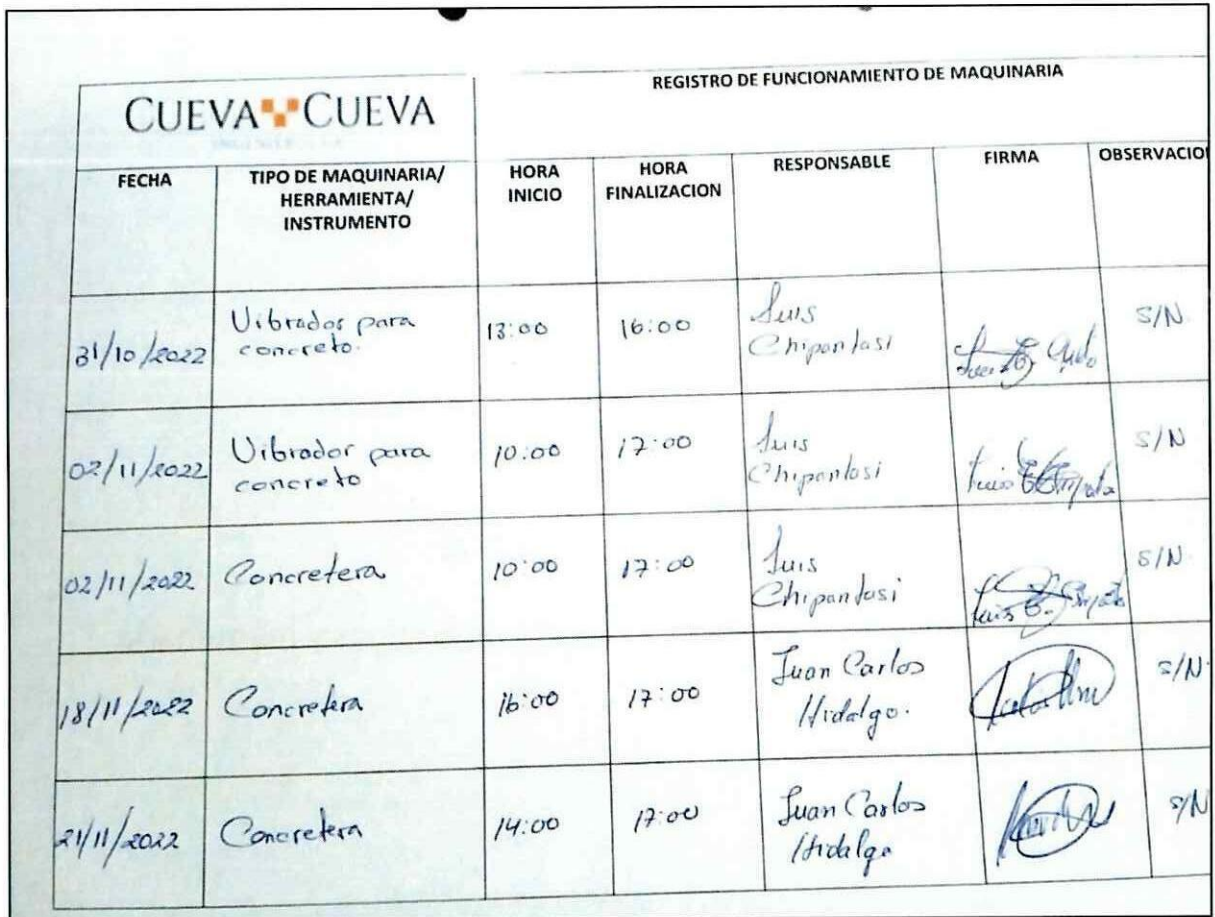 CUEVA CUEVA
REGISTRO DE FUNCIONAMIENTO DE MAQUINARIA
FECHA
TIPO DE MAQUINARIA/
HERRAMIENTA/
INSTRUMENTO
HORA
INICIO
HORA
FINALIZACION
RESPONSABLE
FIRMA
OBSERVACIO
31/10/2022
Vibrador para
concreto.
13:00
16:00
Luis
Chipantasi
S/N
02/11/2022
Vibrador para
concreto
10:00
17:00
Luis
Chipantasi
Luis
S/N
02/11/2022
Concretera
10:00
17:00
Luis
Chipantasi
Luis
S/N
18/11/2022
Concretera
16:00
17:00
Juan Carlos
Hidalgo.
S/N
21/11/2022
Concretera
14:00
17:00
Juan Carlos
Hidalgo
S/N